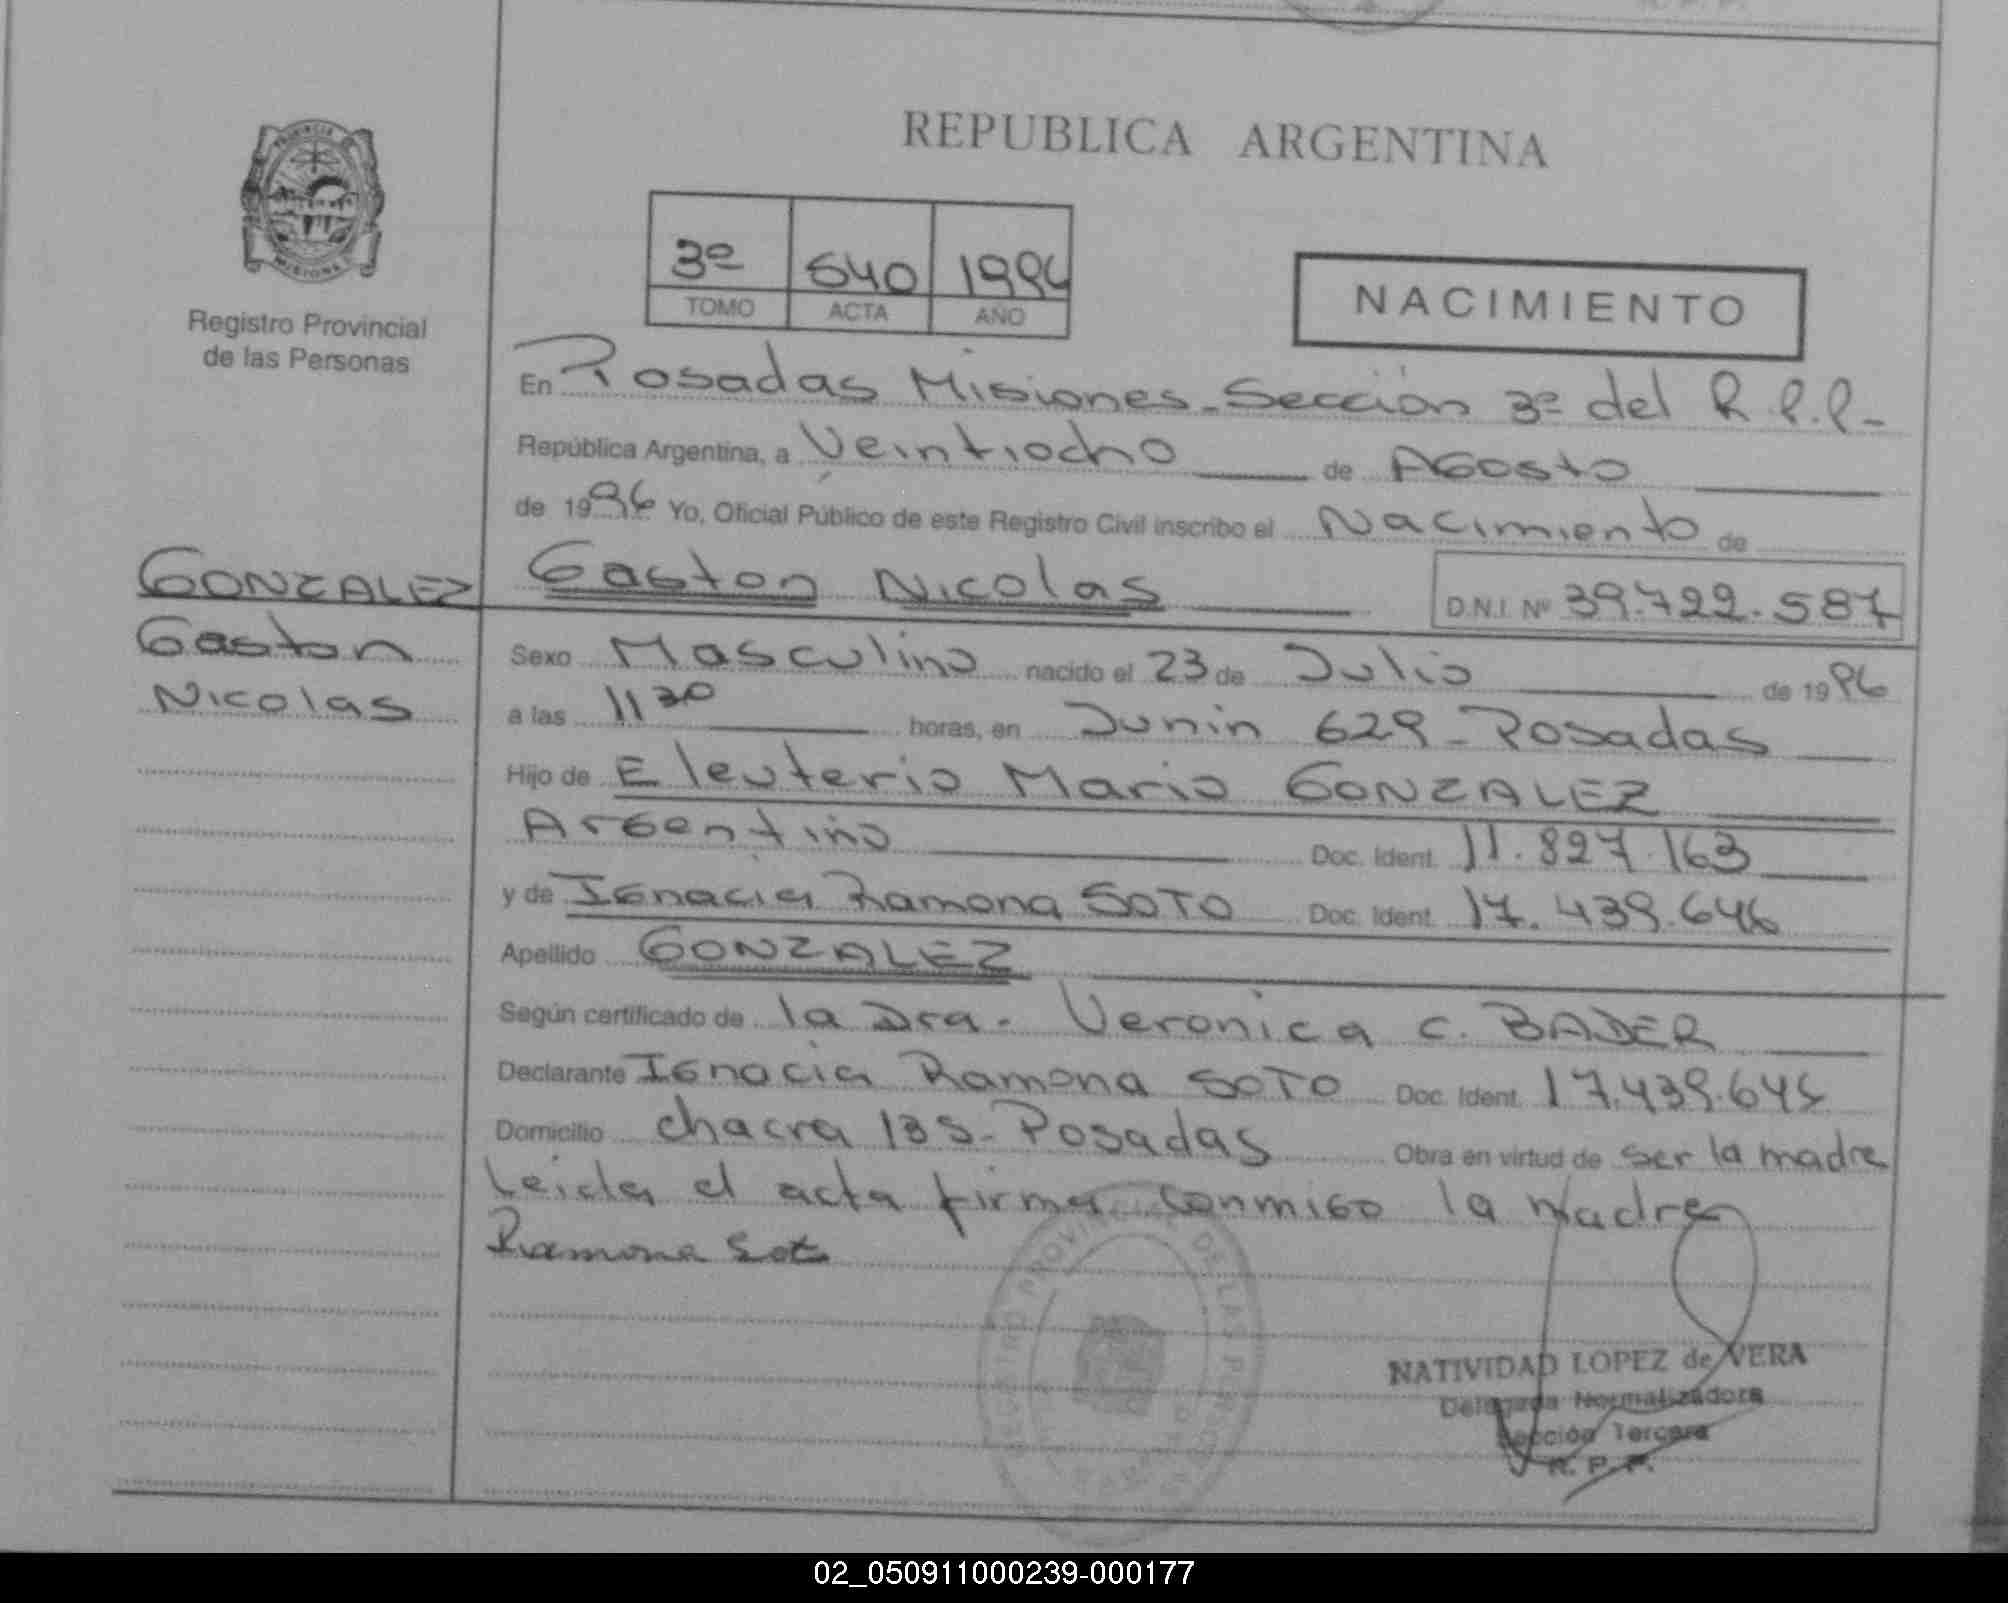 REPUBLICA ARGENTINA
PROVINCIA
MISIONES
Registro Provincial
de las Personas
3º 640 1996
TOMO ACTA AÑO
NACIMIENTO
En Posadas Misiones - Sección 3º del R.P.P.-
República Argentina, a Veintiocho de Agosto
de 1996 Yo, Oficial Público de este Registro Civil inscribo el Nacimiento de
GONZALEZ
Gaston
Nicolas
Gaston Nicolas D.N.I. Nº 39.722.587
Sexo Masculino nacido el 23 de Julio de 1996
a las 11 30 horas, en Junin 629 - Posadas
Hijo de Eleuterio Mario GONZALEZ
Argentino Doc. Ident. 11.827.163
y de Ignacia Ramona SOTO Doc. Ident. 17.439.646
Apellido GONZALEZ
Según certificado de la Dra. Veronica C. BADER
Declarante Ignacia Ramona SOTO Doc. Ident. 17.439.646
Domicilio chacra 135 - Posadas Obra en virtud de ser la madre
Leida el acta firma conmigo la madre
Ramona Soto
REGISTRO PROVINCIAL DE LAS PERSONAS
NATIVIDAD LOPEZ de VERA
Delegada Normalizadora
Sección Tercera
R. P. P.
02_050911000239-000177